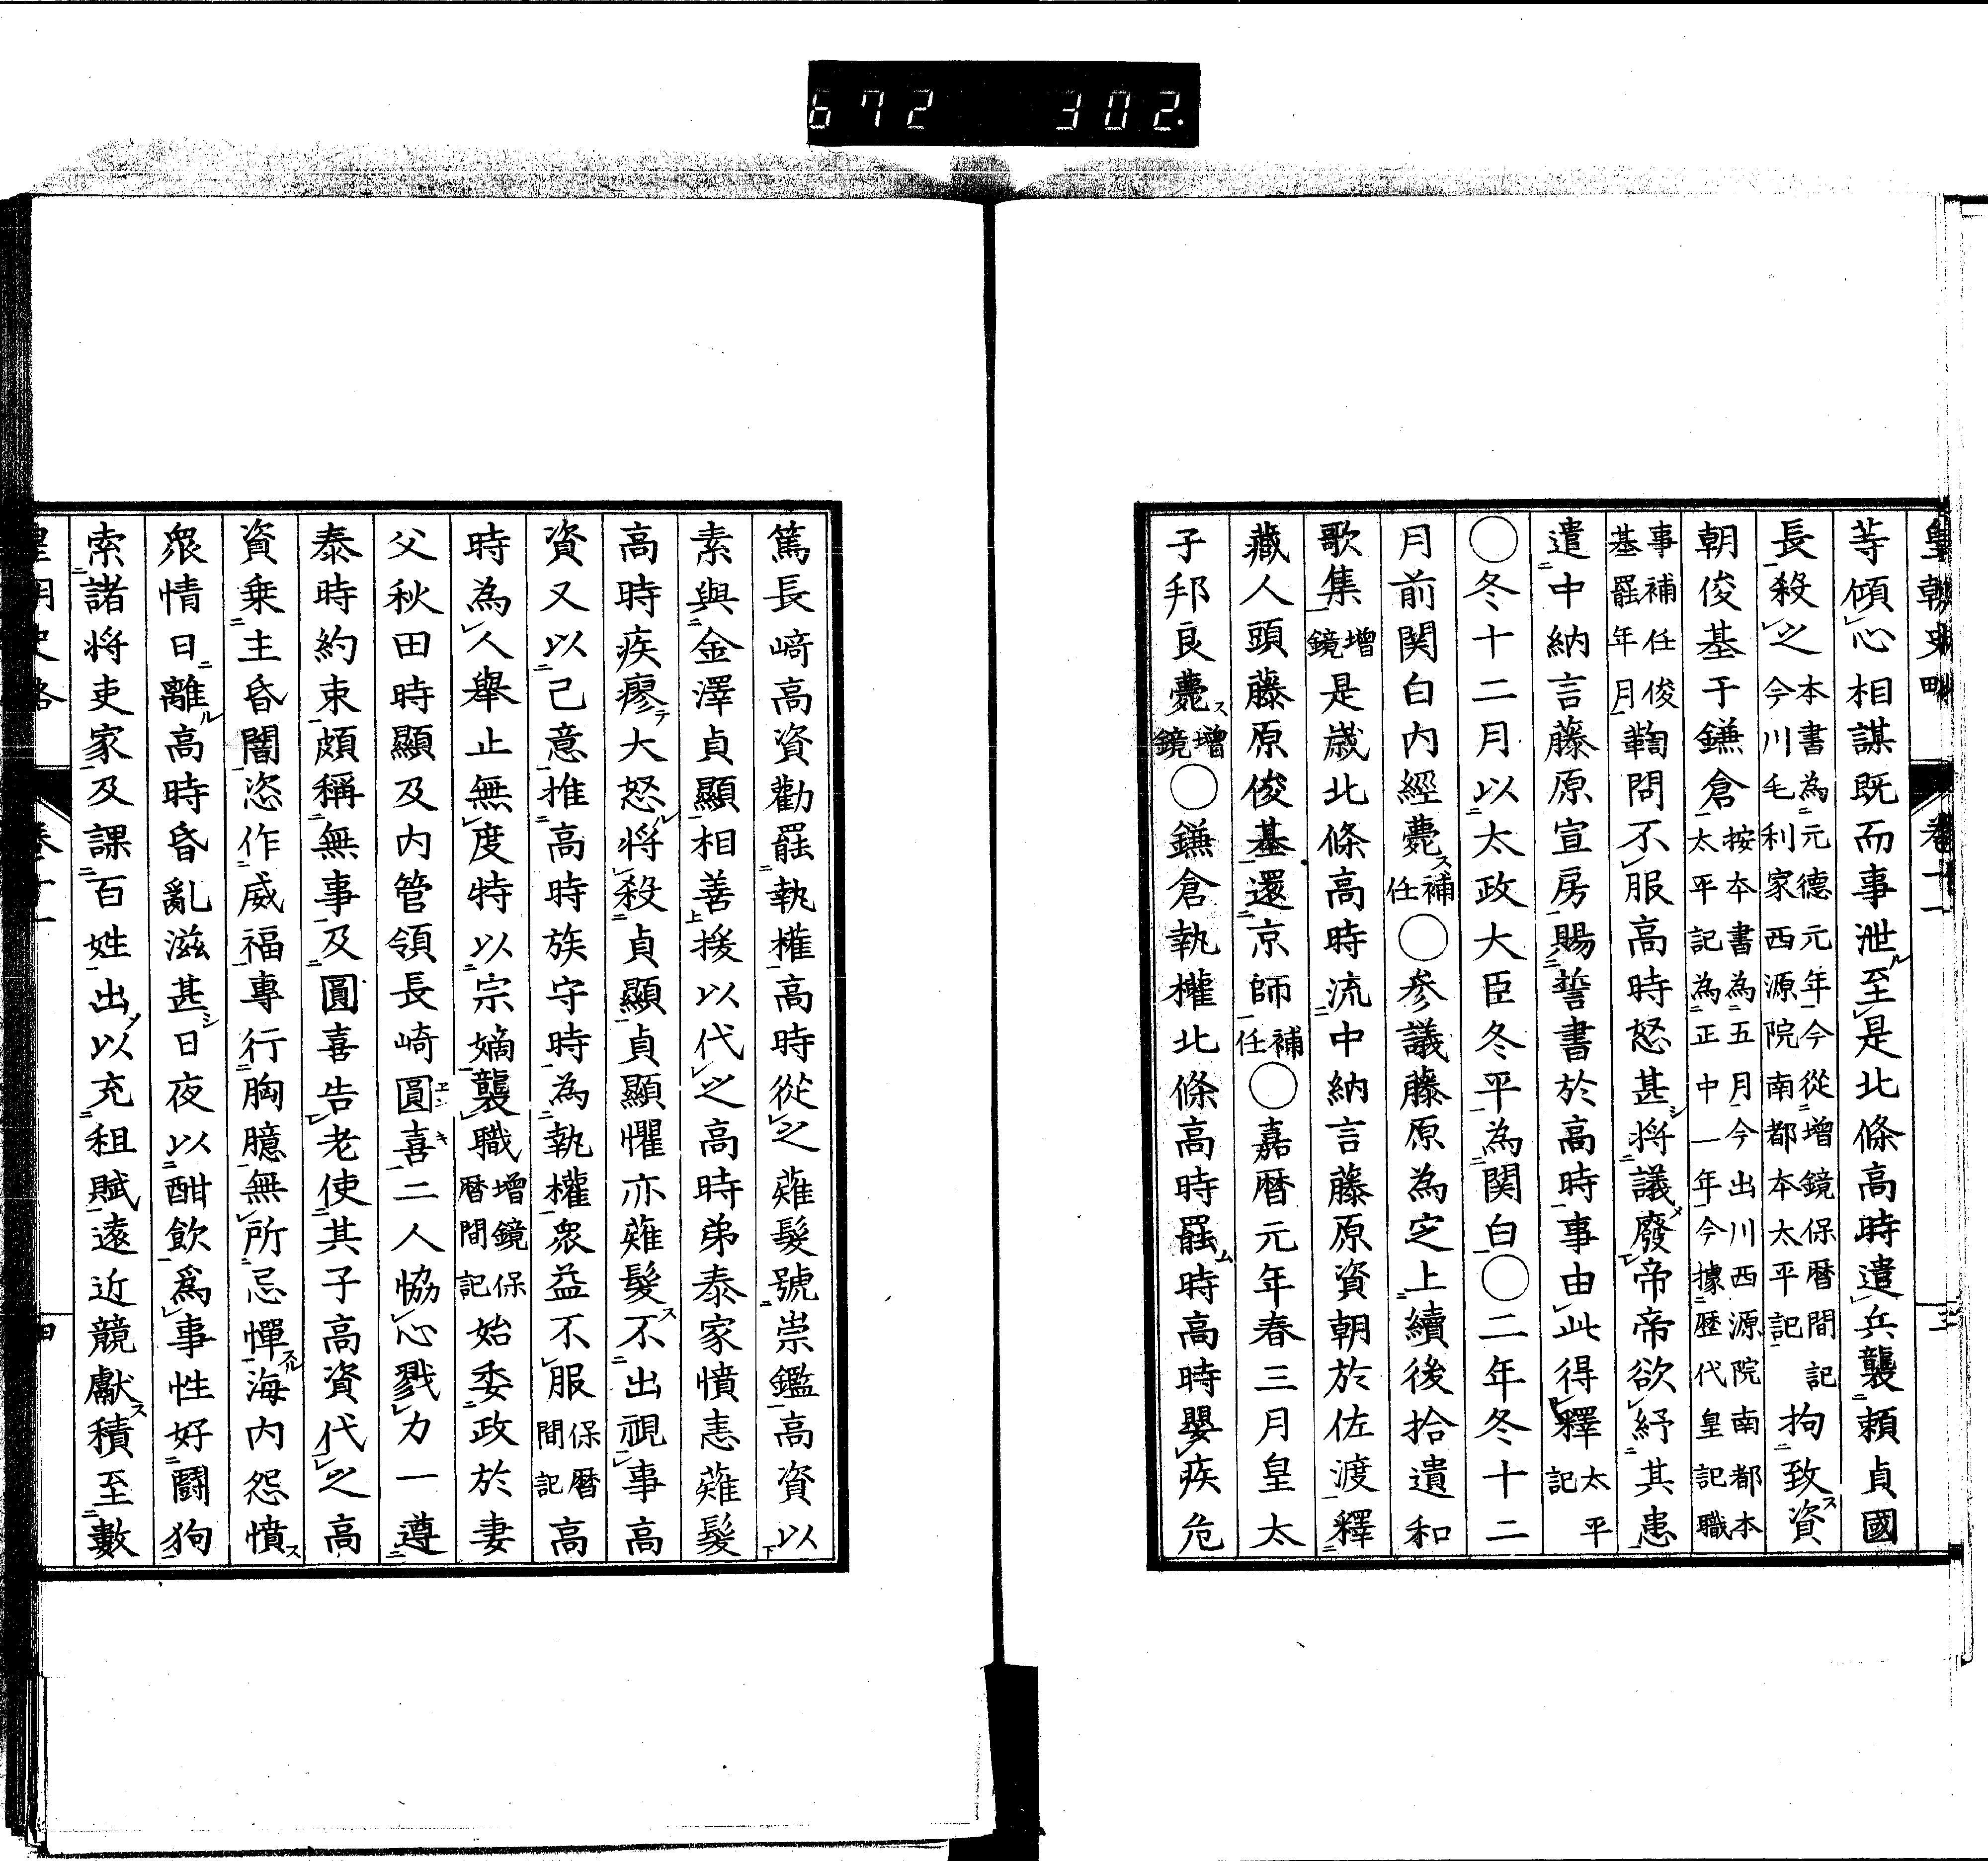 672 302.
皇朝史略 卷十一 三
等傾心相謀既而事泄至是北條高時遣兵襲賴貞國
長殺之本書為元德元年今從增鏡保曆間記今川毛利家西源院南都本太平記拘致資
朝俊基于鎌倉按本書為五月今出川西源院南都本太平記為正中一年今據歷代皇記職
事補任俊基罷年月鞫問不服高時怒甚將議廢帝帝欲紓其患
遣中納言藤原宣房賜誓書於高時事由此得釋太平記
○冬十二月以太政大臣冬平為関白○二年冬十二
月前関白內經薨補任○參議藤原為定上續後拾遺和
歌集增鏡是歳北條高時流中納言藤原資朝於佐渡釋
藏人頭藤原俊基還京師補任○嘉曆元年春三月皇太
子邦良薨增鏡○鎌倉執權北條高時罷時高時嬰疾危
篤長﨑高資勸罷執權高時從之薙髮號崇鑑高資以
素與金澤貞顯相善援以代之高時弟泰家憤恚薙髮
高時疾瘳大怒將殺貞顯貞顯懼亦薙髮不出視事高
資又以己意推高時族守時為執權衆益不服保曆間記高
時為人舉止無度特以宗嫡襲職增鏡保曆間記始委政於妻
父秋田時顯及內管領長崎圓喜二人恊心戮力一遵
エンキ
泰時約束頗稱無事及圓喜告老使其子高資代之高
資乗主昏闇恣作威福專行胸臆無所忌憚海內怨憤
衆情日離高時昏亂滋甚日夜以酣飲爲事性好鬪狗
索諸将吏家及課百姓出以充租賦遠近競獻積至數
皇朝史略 卷十一 四